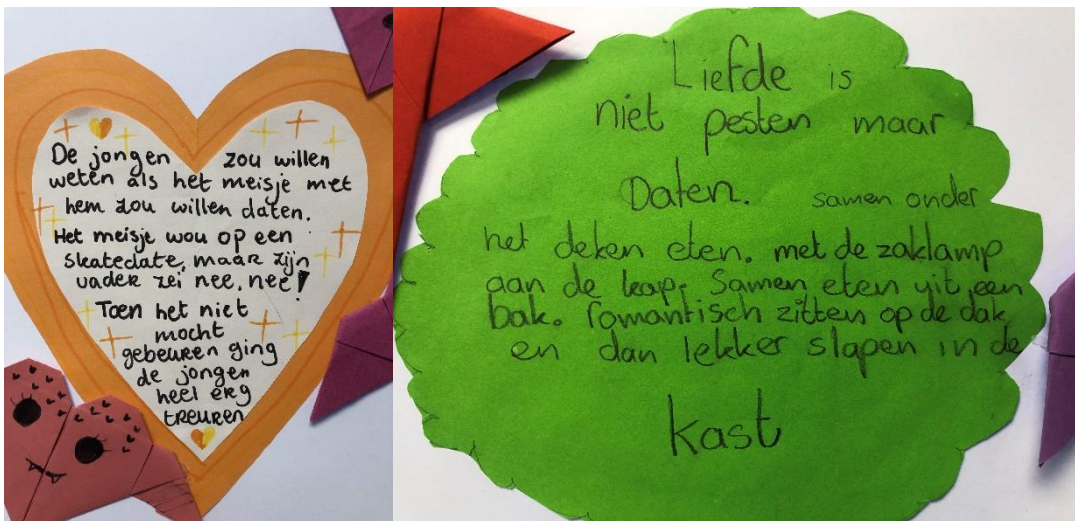 De jongen zou willen
weten als het meisje met
hem zou willen daten.
Het meisje wou op een
skatedate, maar zijn
vader zei nee, nee!
Toen het niet
mocht
gebeuren ging
de jongen
heel erg
treuren
Liefde is
niet pesten maar
Daten. samen onder
het deken eten. met de zaklamp
aan de kap. Samen eten uit een
bak. romantisch zitten op de dak
en dan lekker slapen in de
kast